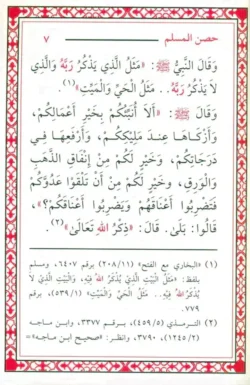 حصن المسلم ٧
وَقَالَ النَّبِيُّ ﷺ: «مَثَلُ الَّذِي يَذْكُرُ رَبَّهُ وَالَّذِي
لَا يَذْكُرُ رَبَّهُ.. مَثَلُ الْحَيِّ وَالْمَيِّتِ»(١).
وَقَالَ ﷺ: «أَلَا أُنَبِّئُكُمْ بِخَيْرِ أَعْمَالِكُمْ،
وَأَزْكَاهَا عِنْدَ مَلِيْكِكُمْ، وَأَرْفَعِهَا فِي
دَرَجَاتِكُمْ، وَخَيْرٍ لَكُمْ مِنْ إِنْفَاقِ الذَّهَبِ
وَالْوَرِقِ، وَخَيْرٍ لَكُمْ مِنْ أَنْ تَلْقَوْا عَدُوَّكُمْ
فَتَضْرِبُوا أَعْنَاقَهُمْ وَيَضْرِبُوا أَعْنَاقَكُمْ؟»،
قَالُوا: بَلَى. قَالَ: «ذِكْرُ اللهِ تَعَالَى»(٢).
(١) «البخاري مع الفتح» (٢٠٨/١١) برقم ٦٤٠٧، ومسلم
بلفظ: «مَثَلُ الْبَيْتِ الَّذِي يُذْكَرُ اللهُ فِيهِ، وَالْبَيْتِ الَّذِي لَا
يُذْكَرُ اللهُ فِيهِ.. مَثَلُ الْحَيِّ وَالْمَيِّتِ» (٥٣٩/١)، برقم
٧٧٩.
(٢) الترمذي (٤٥٩/٥)، برقم ٣٣٧٧، وابن ماجه
(١٢٤٥/٢)، ٣٧٩٠، وانظر: «صحيح ابن ماجه»=